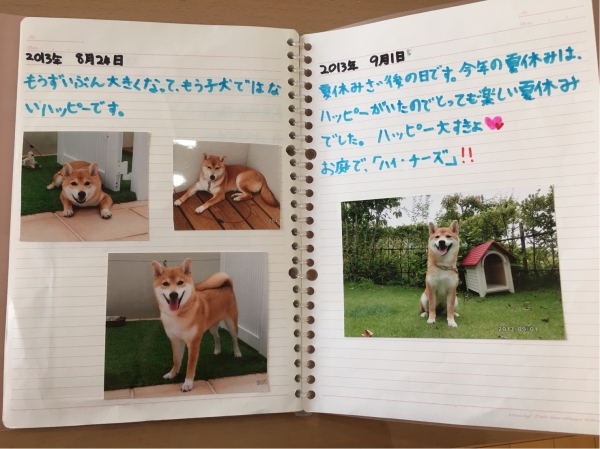 2013年 8月24日
もうずいぶん大きくなって、もう子犬ではな
いハッピーです。
2013年 9月1日
夏休みさい後の日です。今年の夏休みは、
ハッピーがいたのでとっても楽しい夏休み
でした。 ハッピー大すきよ
お庭で、「ハイ・チーズ」!!